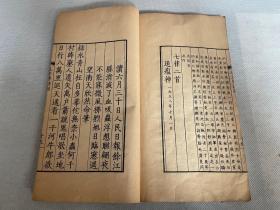 七律二首
送瘟神
一九五八年七月一日
讀六月三十日人民日報餘江
縣消滅了血吸蟲浮想聯翩夜
不能寐微風拂煦旭日臨窗遙
望南天欣然命筆
綠水青山枉自多華佗無奈小蟲何千
村薜荔人遺矢萬戶蕭疏鬼唱歌坐地
日行八萬里巡天遙看一千河牛郎欲